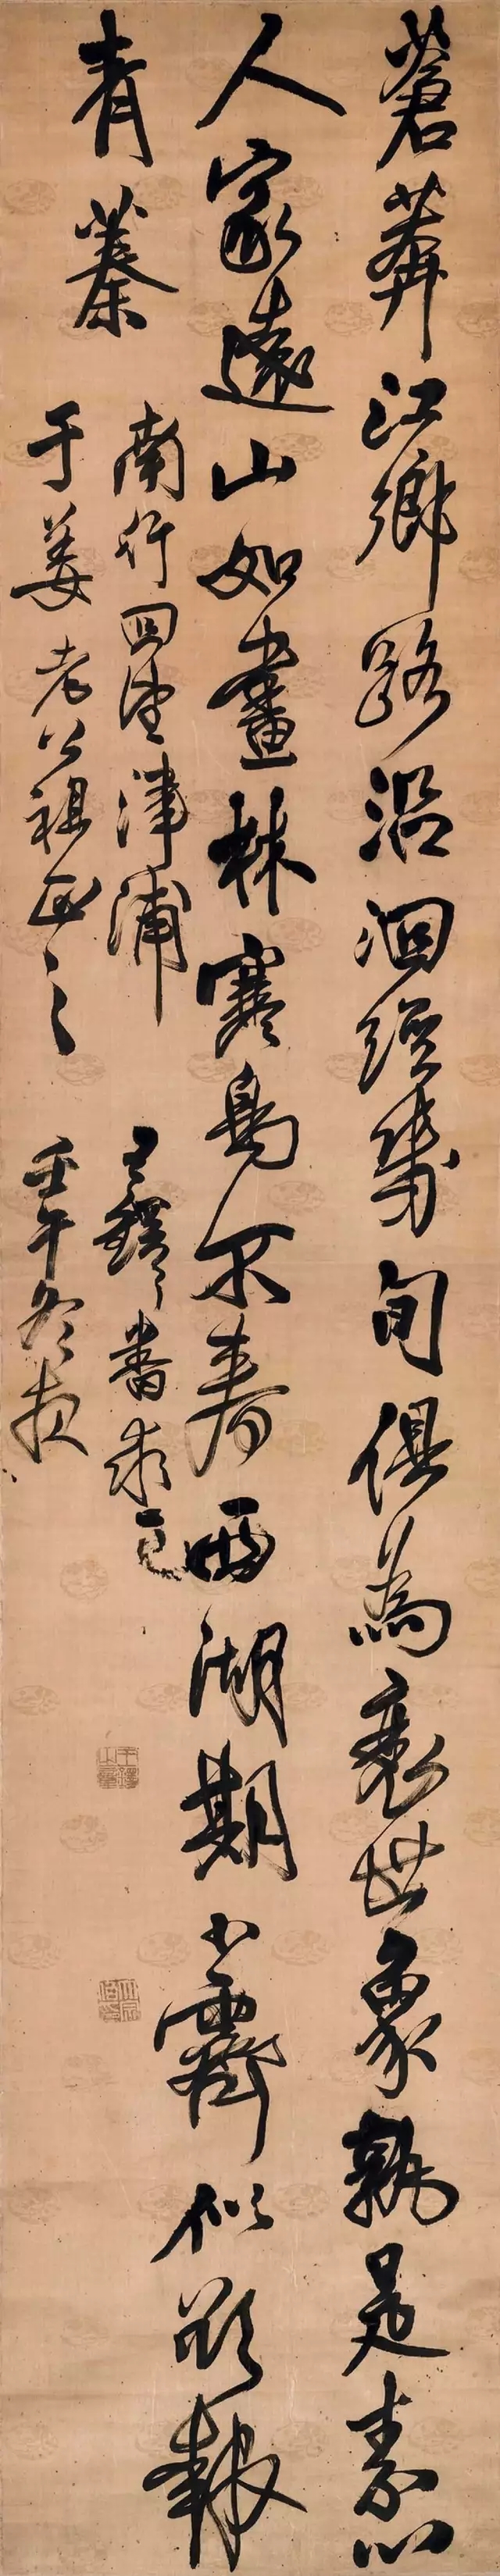 蒼莽江鄉路沿洄經幾旬俱為衰世象孰是素心
人家遠山如畫林寒鳥不春雨湖期小霽似欲報
青蓁
南行回望津浦
于姜老公祖正之
王鐸
壬午冬夜